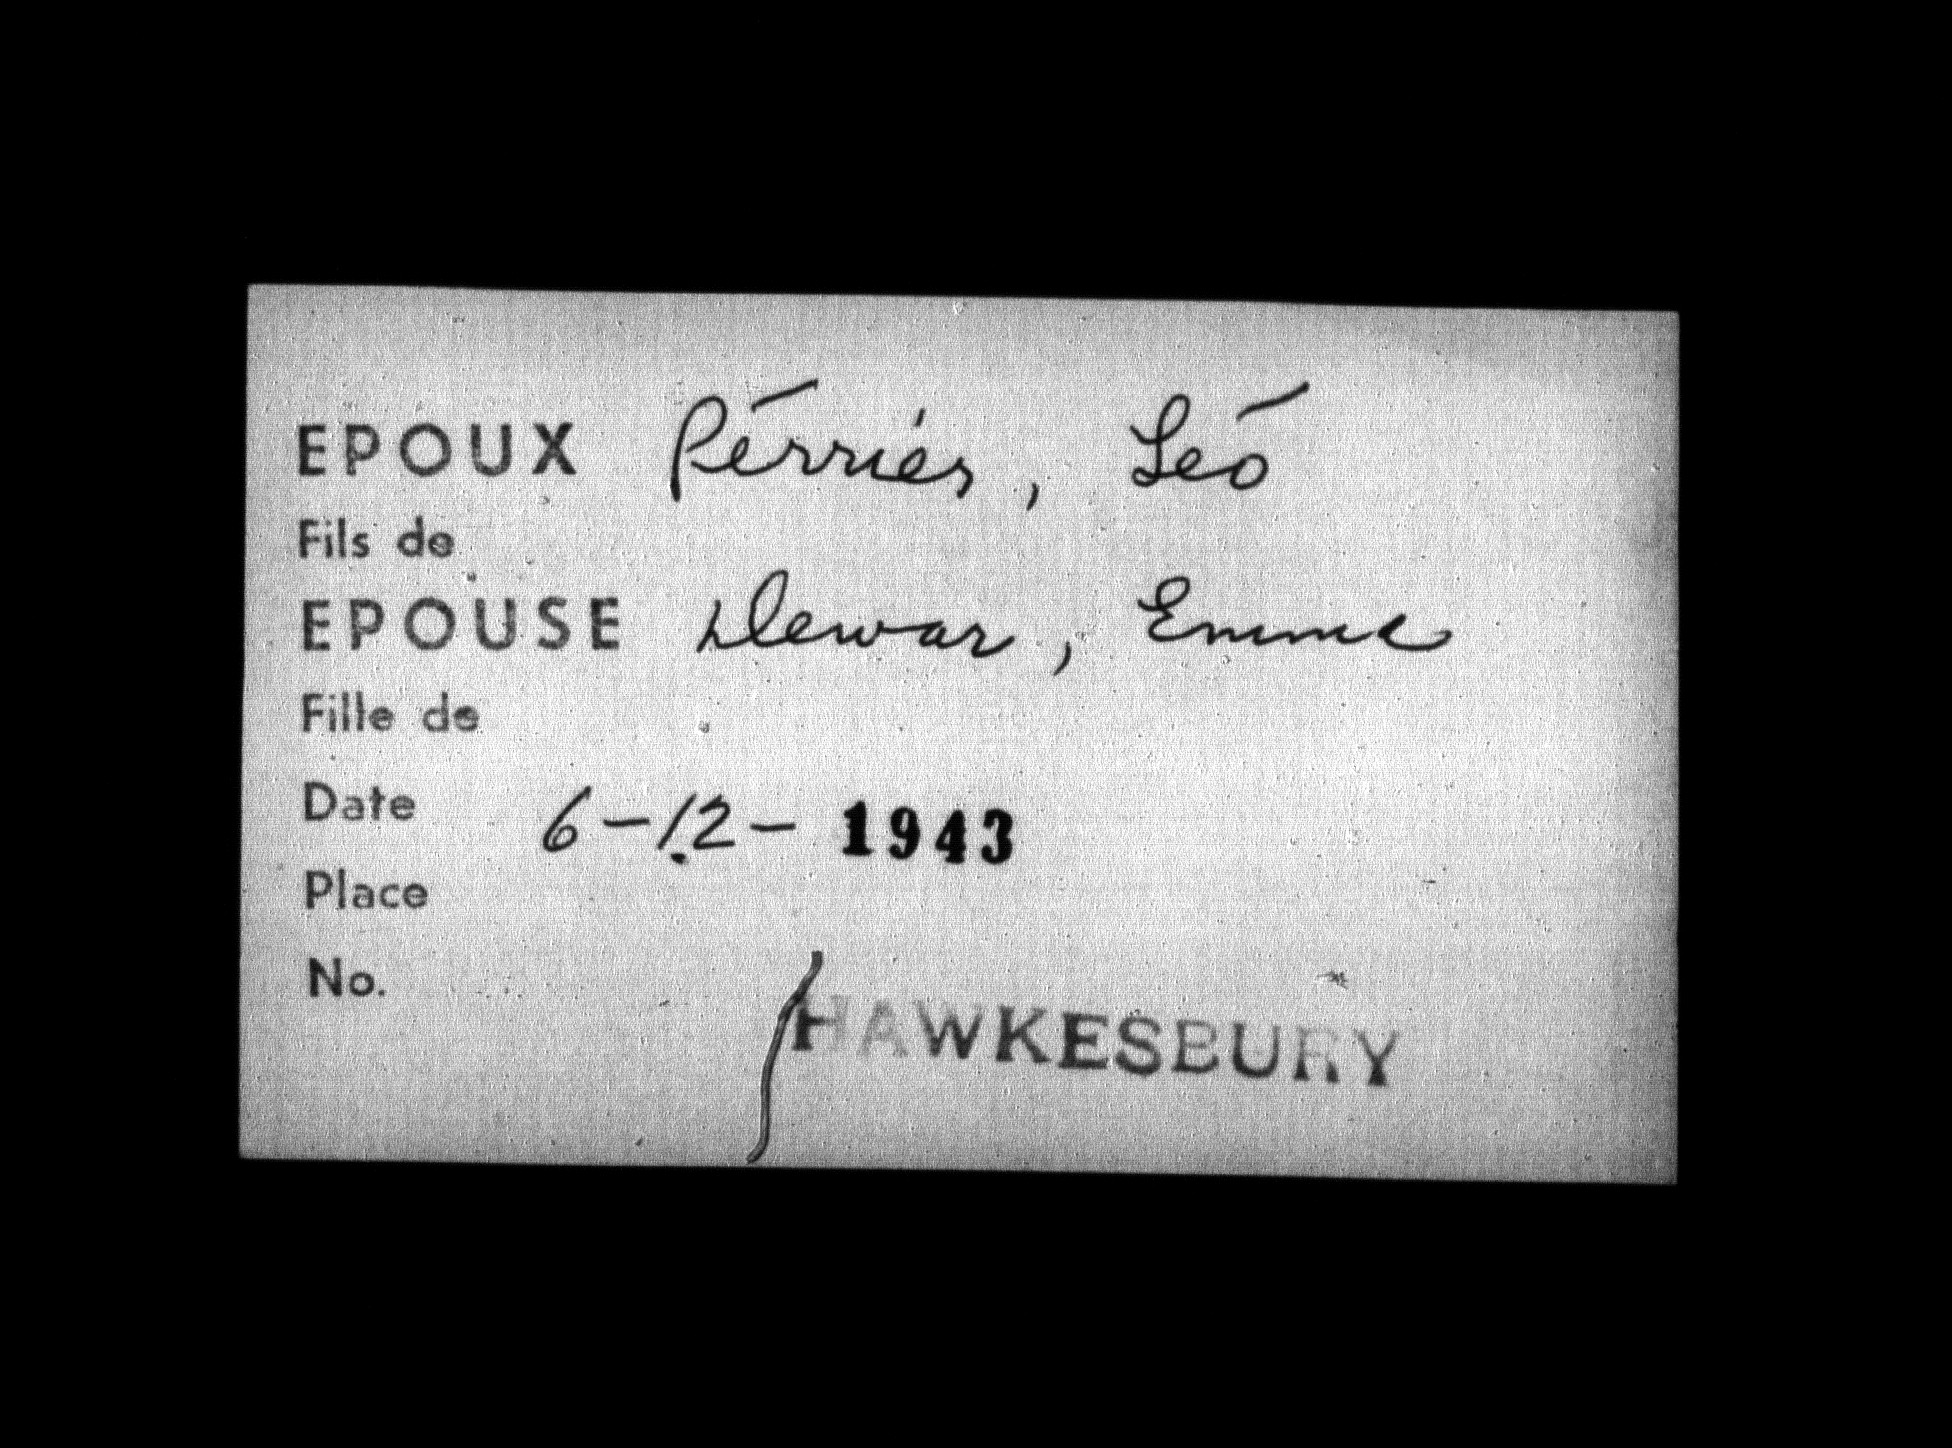 EPOUX Périer, Léo
Fils de
EPOUSE Dewar, Emma
Fille de
Date 6-12-1943
Place
No.
HAWKESBURY